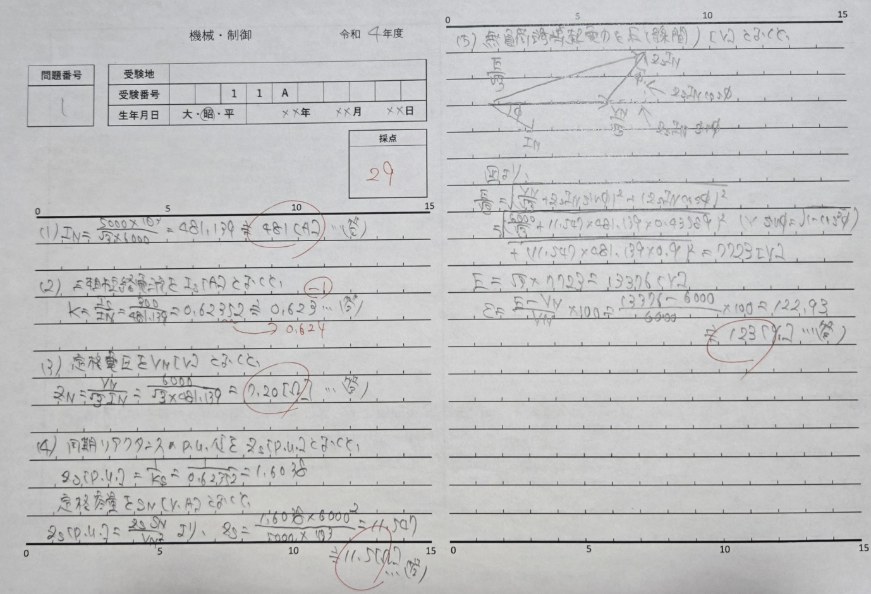 機械・制御 令和 4 年度
問題番号
1
受験地
受験番号 1 1 A
生年月日 大・昭・平 ××年 ××月 ××日
採点
29
0 5 10 15
(1) IN = 5000×10³/√3×6000 = 481.139 ≒ 481[A] …(答)
(2) 三相短絡電流をIs[A]とおくと、 -1
K = Is/IN = 300/481.139 = 0.62352 ≒ 0.623 …(答)
→ 0.624
(3) 定格電圧をVN[V]とおくと、
ZN = VN/√3IN = 6000/√3×481.139 = 7.20[Ω] …(答)
(4) 同期リアクタンスのp.u.値をZs[p.u.]とおくと、
Zs[p.u.] = 1/Ks = 1/0.62352 = 1.6038
定格容量をSN[V.A]とおくと、
Zs[p.u.] = ZsSN/VN² より、 Zs = 1.6038×6000²/5000×10³ = 11.547
≒ 11.5[Ω] …(答)
0 5 10 15
0 5 10 15
(5) 無負荷誘導起電力をE(線間)[V]とおくと、
E/√3 ZsIN
ZsINcosφ
φ VN/√3 ZsINsinφ
IN
図より、
E/√3 = √(VN/√3+ZsINsinφ)²+(ZsINcosφ)²
= √(6000/√3+11.547×481.139×0.43589)² (∵ sinφ=√1-cos²φ)
+(11.547×481.139×0.9)² = 7723[V]
E = √3×7723 = 13376[V]
ε = E-VN/VN ×100 = 13376-6000/6000 ×100 = 122.93
≒ 123[%] …(答)
0 5 10 15